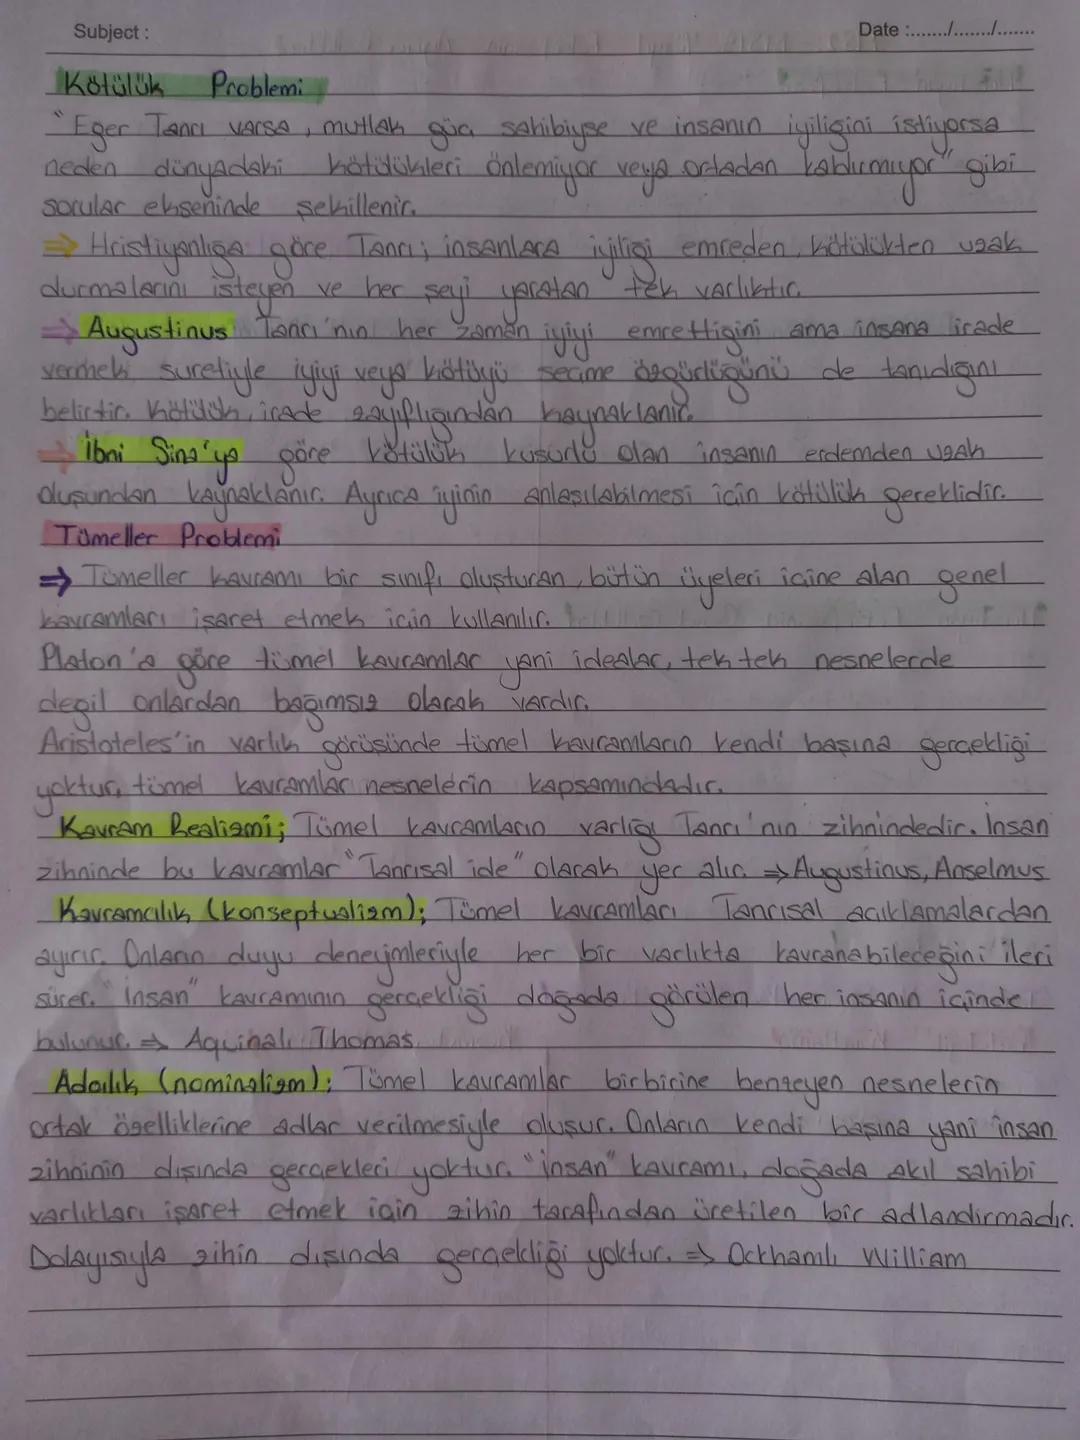 Subject :
Date :......./......./.......
Kötülük Problemi
"Eger Tanrı varsa, mutlak güç sahibiyse ve insanın iyiligini istiyorsa
neden dünyadaki kötülükleri önlemiyor veya ortadan kaldırmıyor" gibi
sorular ekseninde şekillenir.
⇒ Hristiyanlıga göre Tanrı; insanlara iyiligi emreden, kötülükten uzak
durmalarını isteyen ve her seyi yaratan tek varlıktır.
⇒ Augustinus Tanrı'nın her zaman iyiyi emrettigini ama insana irade
vermek suretiyle iyiyi veya kötüyü seçme özgürlügünü de tanıdıgını
belirtir. Kötülük, irade zayıflıgından kaynaklanır.
⇒ İbni Sina'ya göre kötülük kusurlu olan insanın erdemden uzak
oluşundan kaynaklanır. Ayrıca iyinin anlaşılabilmesi için kötülük gereklidir.
Tümeller Problemi
⇒ Tümeller kavramı bir sınıfı oluşturan, bütün üyeleri içine alan genel
kavramları işaret etmek için kullanılır.
Platon'a göre tümel kavramlar yani idealar, tek tek nesnelerde
degil onlardan bağımsız olarak vardır.
Aristoteles'in varlık görüşünde tümel kavramların kendi başına gerçekliği
yoktur, tümel kavramlar nesnelerin kapsamındadır.
Kavram Realizmi; Tümel kavramların varlığı Tanrı'nın zihnindedir. İnsan
zihninde bu kavramlar "Tanrısal ide" olarak yer alır. ⇒ Augustinus, Anselmus
Kavramcılık (konseptualizm); Tümel kavramları Tanrısal açıklamalardan
ayırır. Onların duyu deneyimleriyle her bir varlıkta kavranabileceğini ileri
sürer. "İnsan" kavramının gerçekliği doğada görülen her insanın içinde
bulunur. ⇒ Aquinalı Thomas
Adcılık (nominalizm); Tümel kavramlar birbirine benzeyen nesnelerin
ortak özelliklerine adlar verilmesiyle oluşur. Onların kendi başına yani insan
zihninin dışında gerçekleri yoktur. "İnsan" kavramı, doğada akıl sahibi
varlıkları işaret etmek için zihin tarafından üretilen bir adlandırmadır.
Dolayısıyla zihin dışında gerçekliği yoktur. ⇒ Ockhamlı William